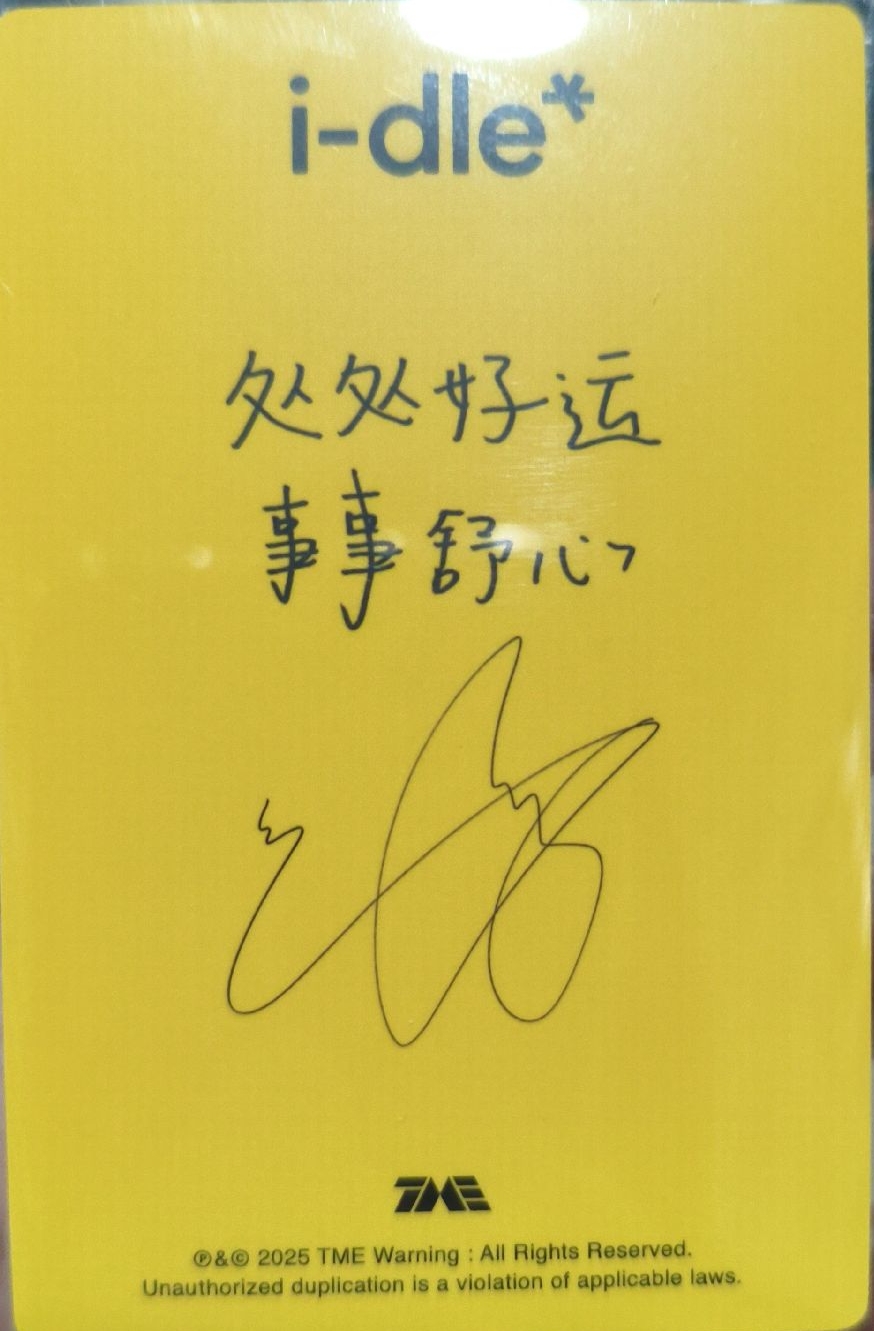 i-dle*
处处好运
事事舒心
TME
℗&© 2025 TME Warning : All Rights Reserved.
Unauthorized duplication is a violation of applicable laws.